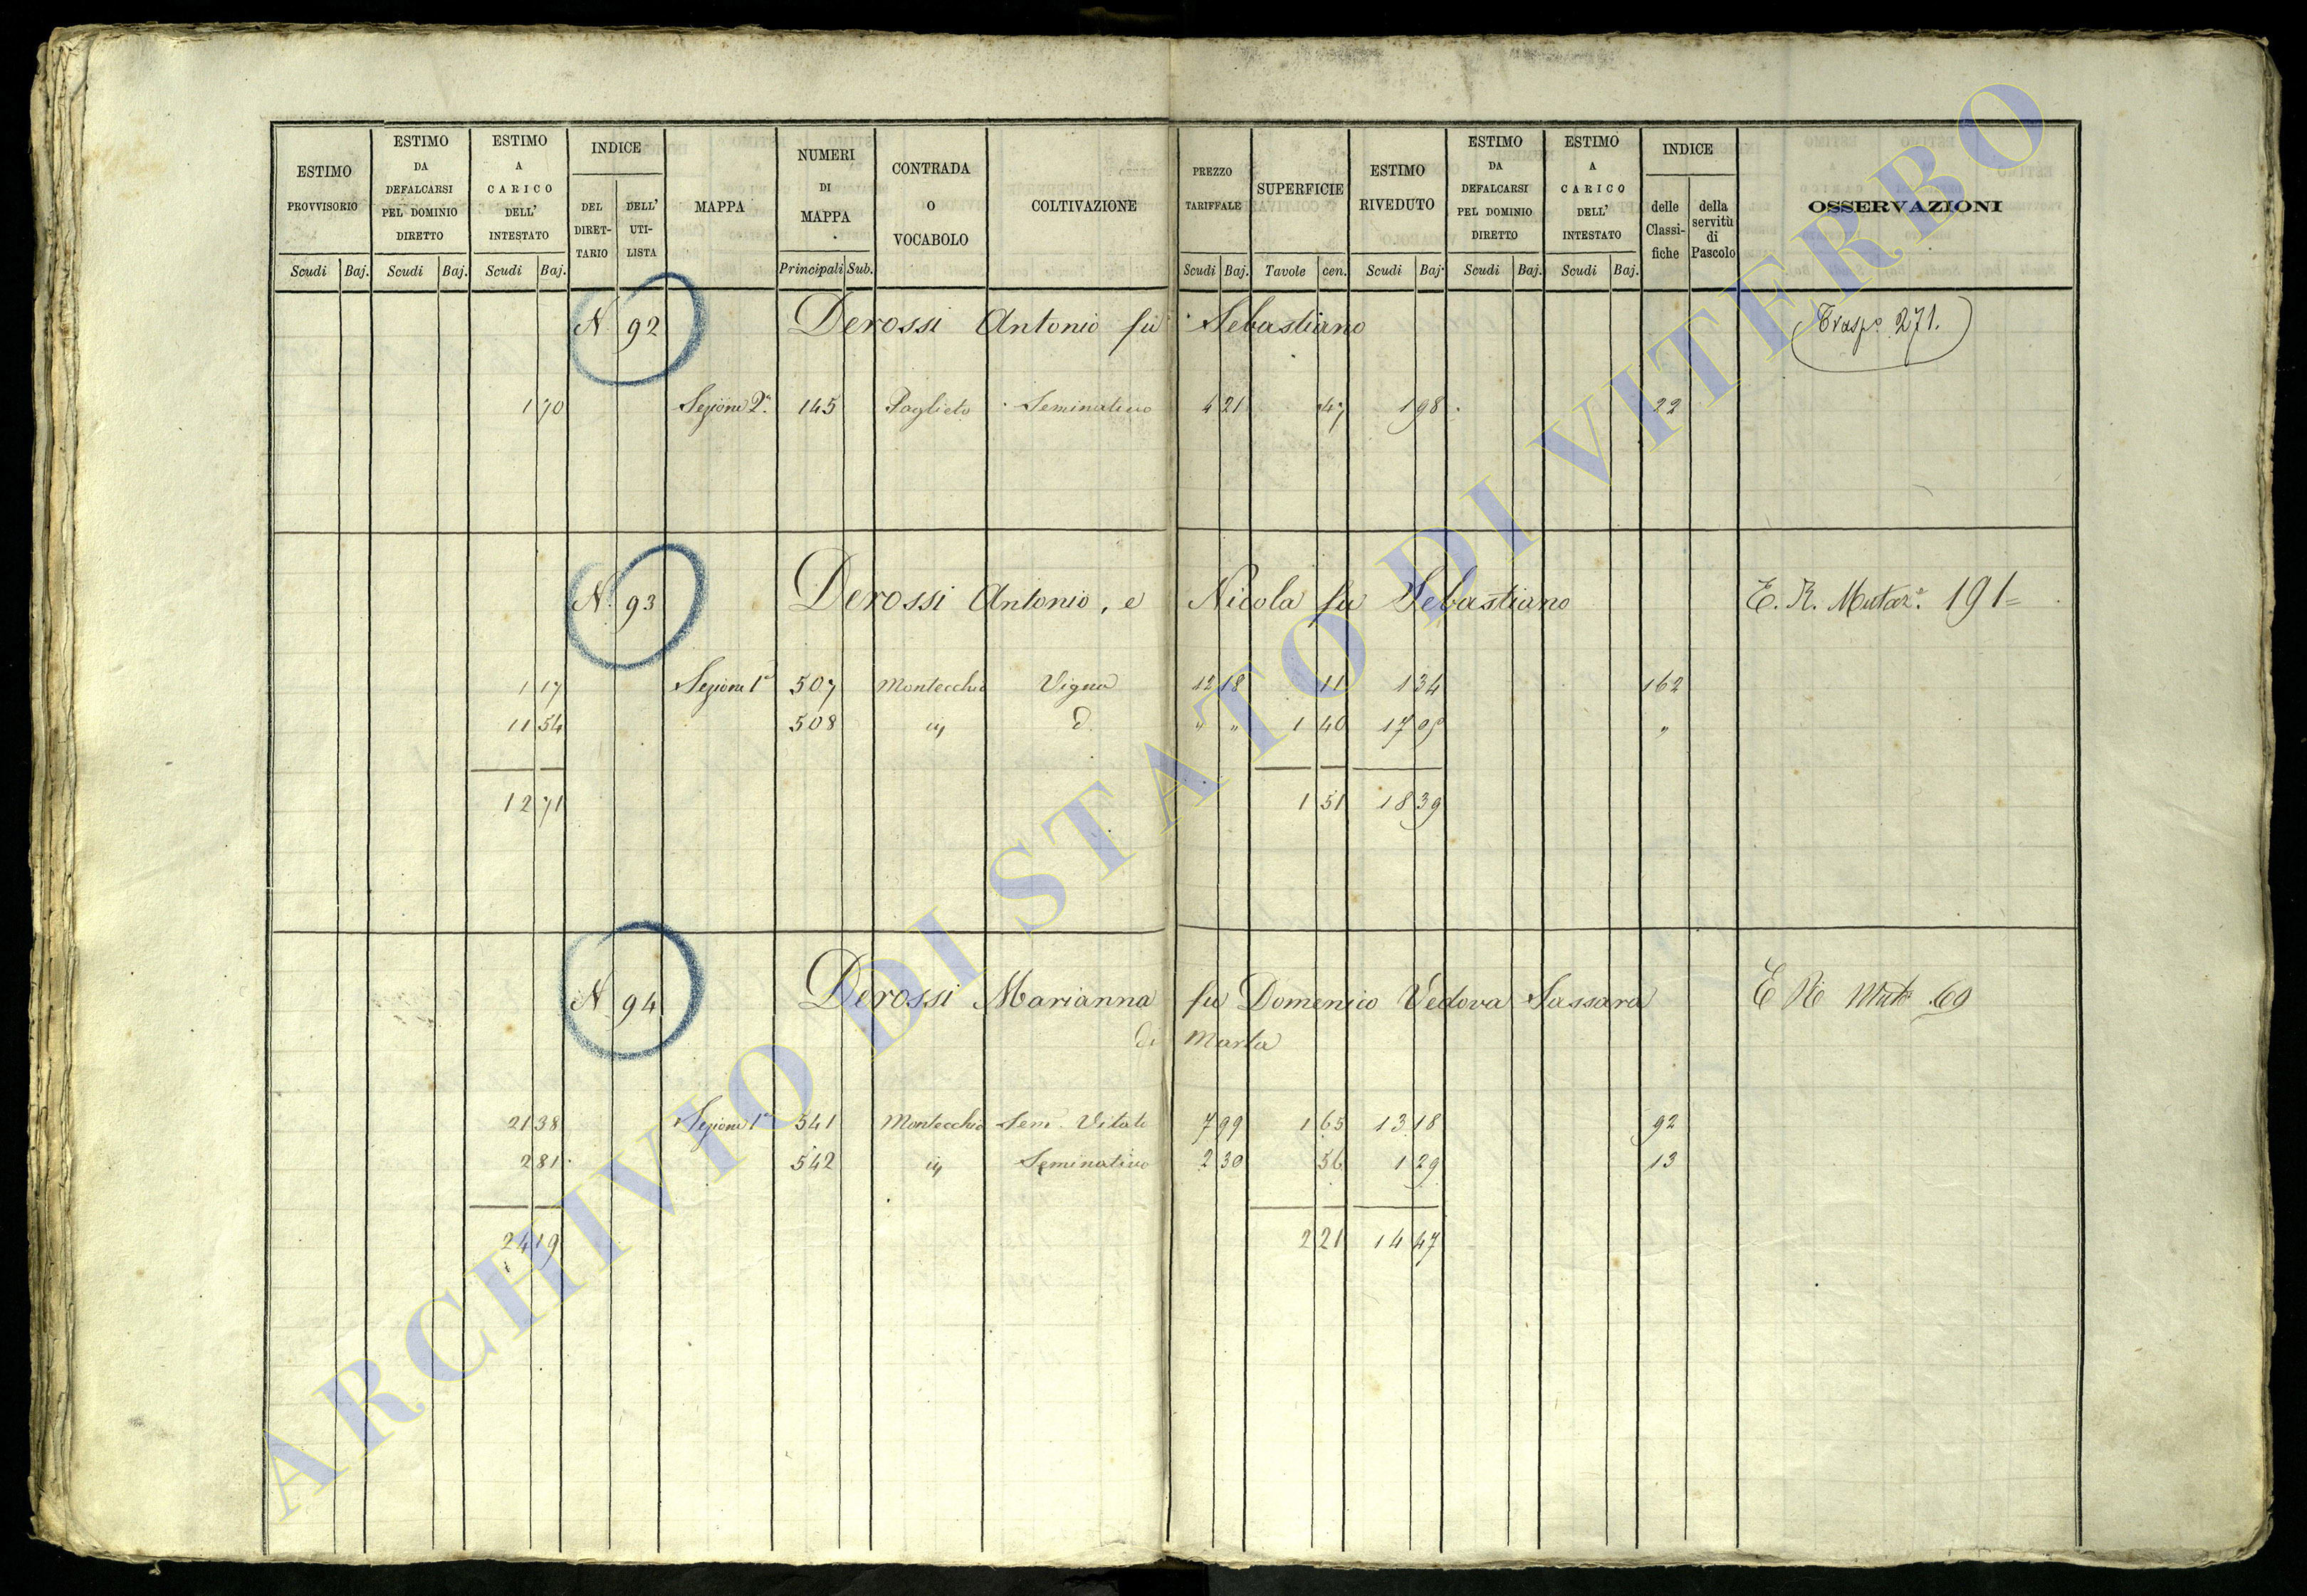 ESTIMO PROVVISORIO | ESTIMO DA DEFALCARSI PEL DOMINIO DIRETTO | ESTIMO A CARICO DELL' INTESTATO | INDICE DEL DIRET-TARIO | DELL' UTI-LISTA | MAPPA | NUMERI DI MAPPA | CONTRADA O VOCABOLO | COLTIVAZIONE | PREZZO TARIFFALE | SUPERFICIE | ESTIMO RIVEDUTO | ESTIMO DA DEFALCARSI PEL DOMINIO DIRETTO | ESTIMO A CARICO DELL' INTESTATO | INDICE delle Classi-fiche | della servitù di Pascolo | OSSERVAZIONI
Scudi Baj. Scudi Baj. Scudi Baj. Principali Sub. Scudi Baj. Tavole cen. Scudi Baj. Scudi Baj. Scudi Baj.
N. 92 Derossi Antonio fu Sebastiano Traspo. 271.
1 70 Sezione 2a. 145 Paglieto Seminativo 4 21 47 1 98 22
N. 93 Derossi Antonio, e Nicola fu Sebastiano E. R. Mutaz.e 191=
1 17 Sezione 1a 507 Montecchio Vigna 12 18 11 1 34 162
11 54 508 id. " " 1 40 17 05 "
12 71 1 51 18 39
N. 94 Derossi Marianna fu Domenico Vedova Sassara
di Marta
21 38 Sezione 1a 541 Montecchio Sem. Vitato 7 99 1 65 13 18 92
2 81 542 Seminativo 2 30 56 1 29 13
24 19 2 21 14 47
ARCHIVIO DI STATO DI VITERBO